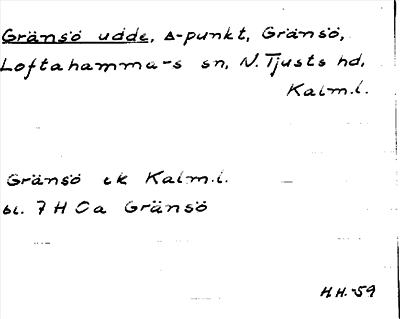 Gränsö udde, Δ-punkt, Gränsö,
Loftahammars sn, N. Tjusts hd,
Kalm.l.
Gränsö ek Kalm.l.
bl. 7 H 0a Gränsö
H.H.-59